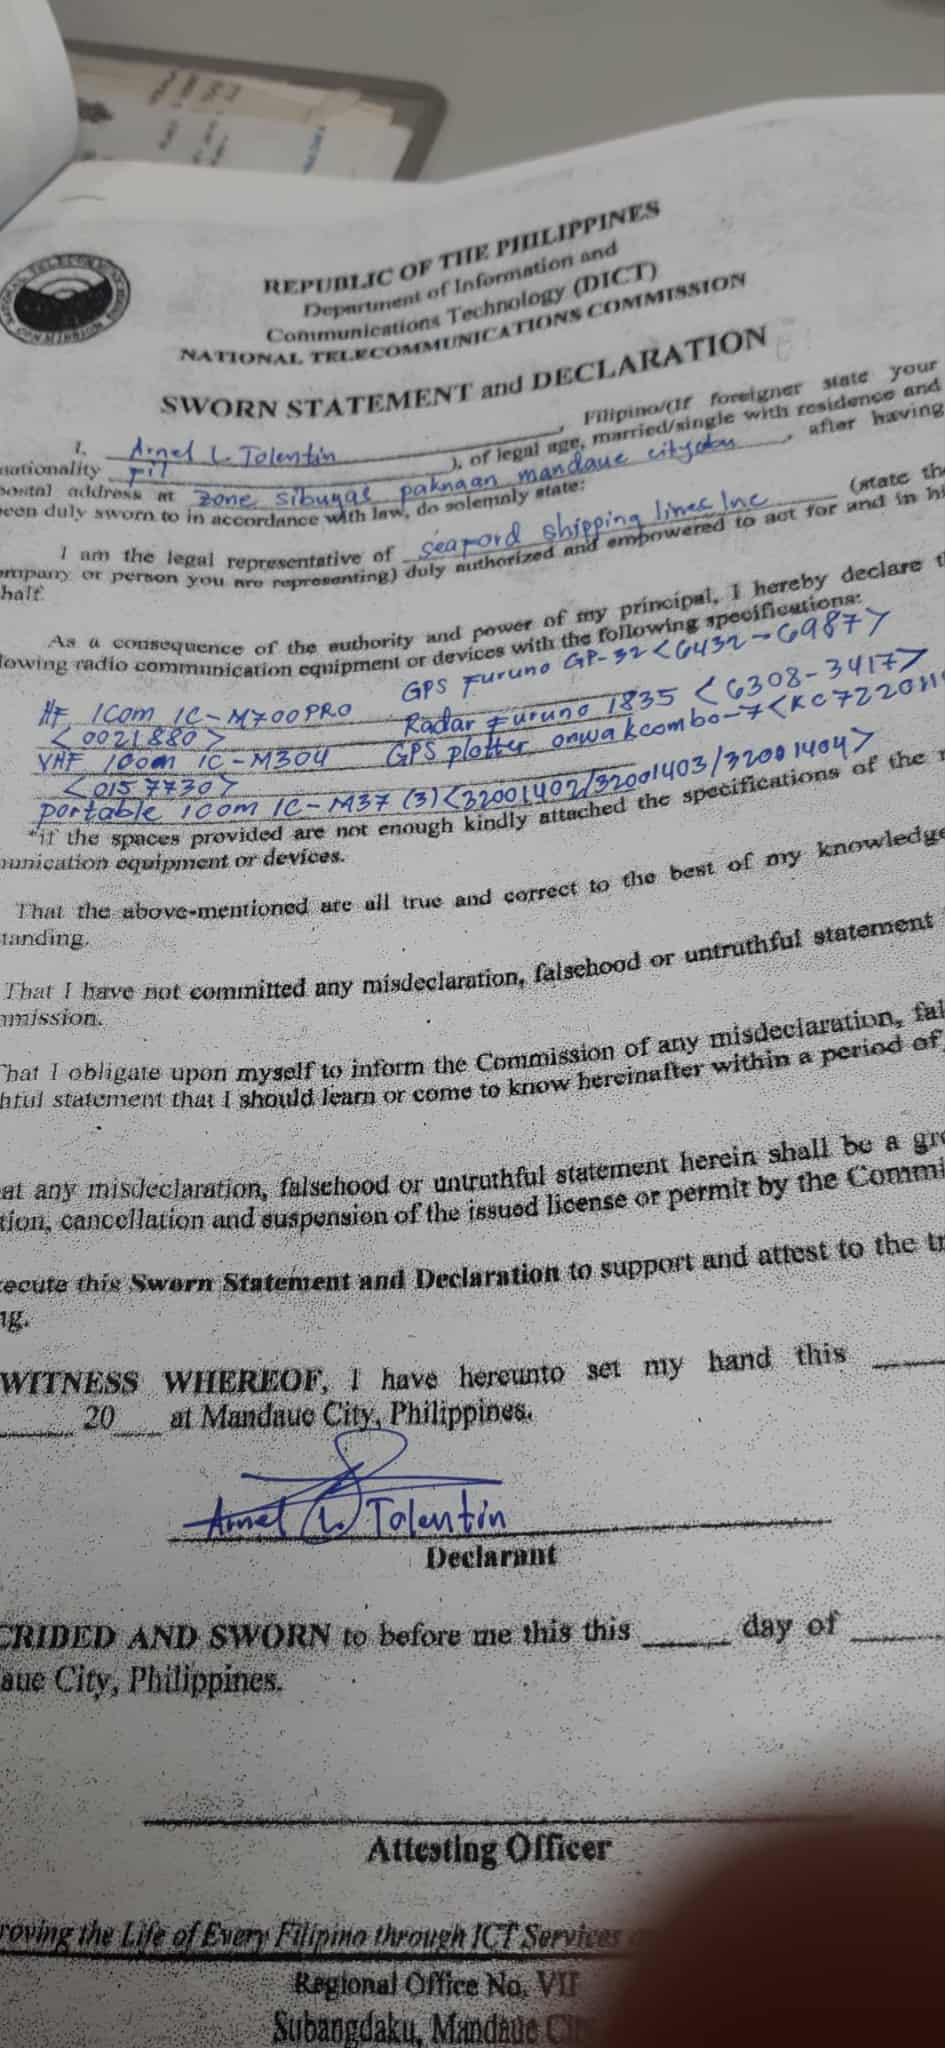 REPUBLIC OF THE PHILIPPINES
Department of Information and
Communications Technology (DICT)
NATIONAL TELECOMMUNICATIONS COMMISSION
SWORN STATEMENT and DECLARATION
I, Arnel L. Tolentin, Filipino/(If foreigner state your
nationality Fil ), of legal age, married/single with residence and
postal address at zone sibuyas paknaan mandaue city, after having
been duly sworn to in accordance with law, do solemnly state:
I am the legal representative of seaford shipping lines Inc (state the
ompany or person you are representing) duly authorized and empowered to act for and in hi
half.
As a consequence of the authority and power of my principal, I hereby declare t
lowing radio communication equipment or devices with the following specifications:
HF ICom IC-M700PRO GPS Furuno GP-32 <6432-6987>
<0021880> Radar Furuno 1835 <6308-3417>
VHF icom IC-M304 GPS plotter onwa kcombo-7 <KC722011
<0157730>
portable icom IC-M37 (3) <32001402/32001403/32001404>
*if the spaces provided are not enough kindly attached the specifications of the r
munication equipment or devices.
That the above-mentioned are all true and correct to the best of my knowledge
tanding.
That I have not committed any misdeclaration, falsehood or untruthful statement
mmission.
That I obligate upon myself to inform the Commission of any misdeclaration, fal
hful statement that I should learn or come to know hereinafter within a period of
at any misdeclaration, falsehood or untruthful statement herein shall be a gro
tion, cancellation and suspension of the issued license or permit by the Commi
ecute this Sworn Statement and Declaration to support and attest to the tr
ng.
WITNESS WHEREOF, I have hereunto set my hand this ____
____ 20___ at Mandaue City, Philippines.
Arnel L. Tolentin
Declarant
CRIBED AND SWORN to before me this this ____ day of ____
aue City, Philippines.
Attesting Officer
roving the Life of Every Filipino through ICT Services
Regional Office No. VII
Subangdaku, Mandaue Ci